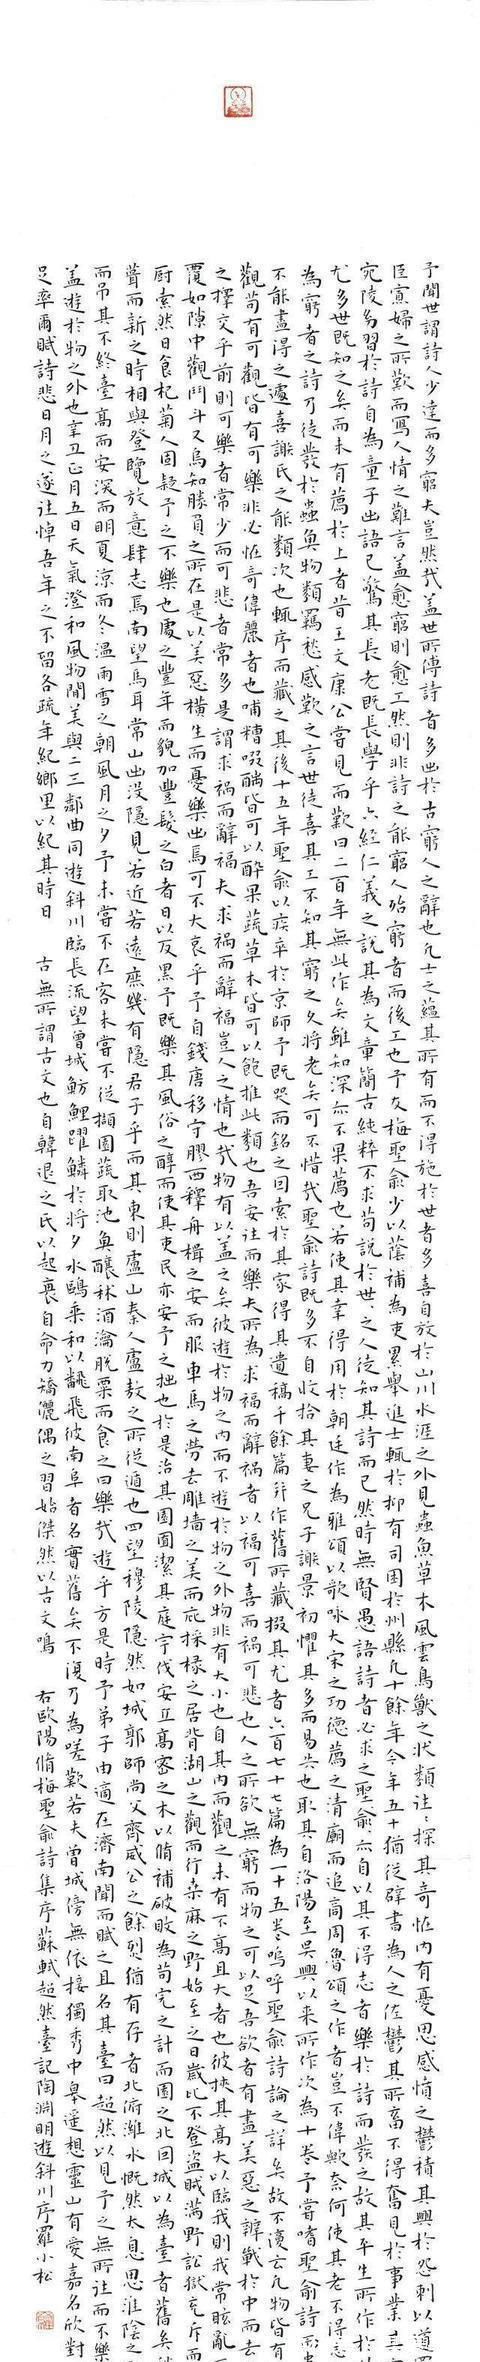 予聞世謂詩人少達而多窮夫豈然哉蓋世所傳詩者多出於古窮人之辭也凡士之蘊其所有而不得施於世者多喜自放於山川水涯之外見蟲魚草木風雲鳥獸之狀類往往探其奇怪內有憂思感憤之鬱積其興於怨刺以道羈
臣寡婦之所歎而寫人情之難言蓋愈窮則愈工然則非詩之能窮人殆窮者而後工也予友梅聖俞少以蔭補為吏累舉進士輒抑於有司困於州縣凡十餘年今年五十猶從辟書為人之佐鬱其所畜不得奮見於事業其
宛陵幼習於詩自為童子出語已驚其長老既長學乎六經仁義之說其為文章簡古純粹不求苟說於世世之人徒知其詩而已然時無賢愚語詩者必求之聖俞聖俞亦自以其不得志者樂於詩而發之故其平生所作於
尤多世既知之矣而未有薦於上者昔王文康公嘗見而歎曰二百年無此作矣雖知之深亦不果薦也若使其幸得用於朝廷作為雅頌以歌詠大宋之功德薦之清廟而追商周魯頌之作者豈不偉歟奈何使其老不得志
為窮者之詩乃徒發於蟲魚物類羈愁感歎之言世徒喜其工不知其窮之久將老矣可不惜哉聖俞詩既多不自收拾其妻之兄子謝景初懼其多而易失也取其自洛陽至吳興以來所作次為十卷予嘗嗜聖俞詩而患
不能盡得之遽喜謝氏之能類次也輒序而藏之其後十五年聖俞以疾卒於京師予既哭而銘之因索於其家得其遺稿千餘篇并作舊所藏掇其尤者六百七十七篇為一十五卷嗚呼聖俞詩論之詳矣故不復云凡物皆有
觀苟有可觀皆有可樂非必怪奇偉麗者也哺糟啜醨皆可以醉果蔬草木皆可以飽推此類也吾安往而樂夫所為求福而辭禍者以福可喜而禍可悲也人之所欲無窮而物之可以足吾欲者有盡美惡之辨戰於中而去
之擇交乎前則可樂者常少而可悲者常多是謂求禍而辭福夫求禍而辭福豈人之情也哉物有以蓋之矣彼遊於物之內而不遊於物之外物非有大小也自其內而觀之未有不高且大者也彼挾其高大以臨我則我常眩亂
覆如隙中觀鬥又烏知勝負之所在是以美惡橫生而憂樂出焉可不大哀乎予自錢唐移守膠西釋舟楫之安而服車馬之勞去雕墻之美而庇採椽之居背湖山之觀而行桑麻之野始至之日歲比不登盜賊滿野訟獄充斥而
廚索然日食杞菊人固疑予之不樂也處之朞年而貌加豐髮之白者日以反黑予既樂其風俗之醇而使其吏民亦安予之拙也於是治其園囿潔其庭宇伐安丘高密之木以脩補破敗為苟完之計而園之北因城以為臺者舊矣
葺而新之時相與登覽放意肆志焉南望馬耳常山出沒隱見若近若遠庶幾有隱君子乎而其東則盧山秦人盧敖之所從遁也西望穆陵隱然如城郭師尚父齊威公之餘烈猶有存者北俯濰水慨然太息思淮陰之
而吊其不終臺高而安深而明夏涼而冬溫雨雪之朝風月之夕予未嘗不在客未嘗不從擷園蔬取池魚釀秫酒瀹脫粟而食之曰樂哉遊乎方是時予弟子由適在濟南聞而賦之且名其臺曰超然以見予之無所往而不樂
蓋遊於物之外也辛丑正月五日天氣澄和風物閒美與二三鄰曲同遊斜川臨長流望曾城魴鯉躍鱗於將夕水鷗乘和以翻飛彼南阜者名實舊矣不復乃為嗟歎若夫曾城傍無依接獨秀中皋遙想靈山有愛嘉名欣對
足率爾賦詩悲日月之遂往悼吾年之不留各疏年紀鄉里以紀其時日 古無所謂古文也自韓退之氏以起衰自命力矯儷偶之習始傑然以古文鳴 右歐陽脩梅聖俞詩集序蘇軾超然臺記陶淵明遊斜川序羅小松